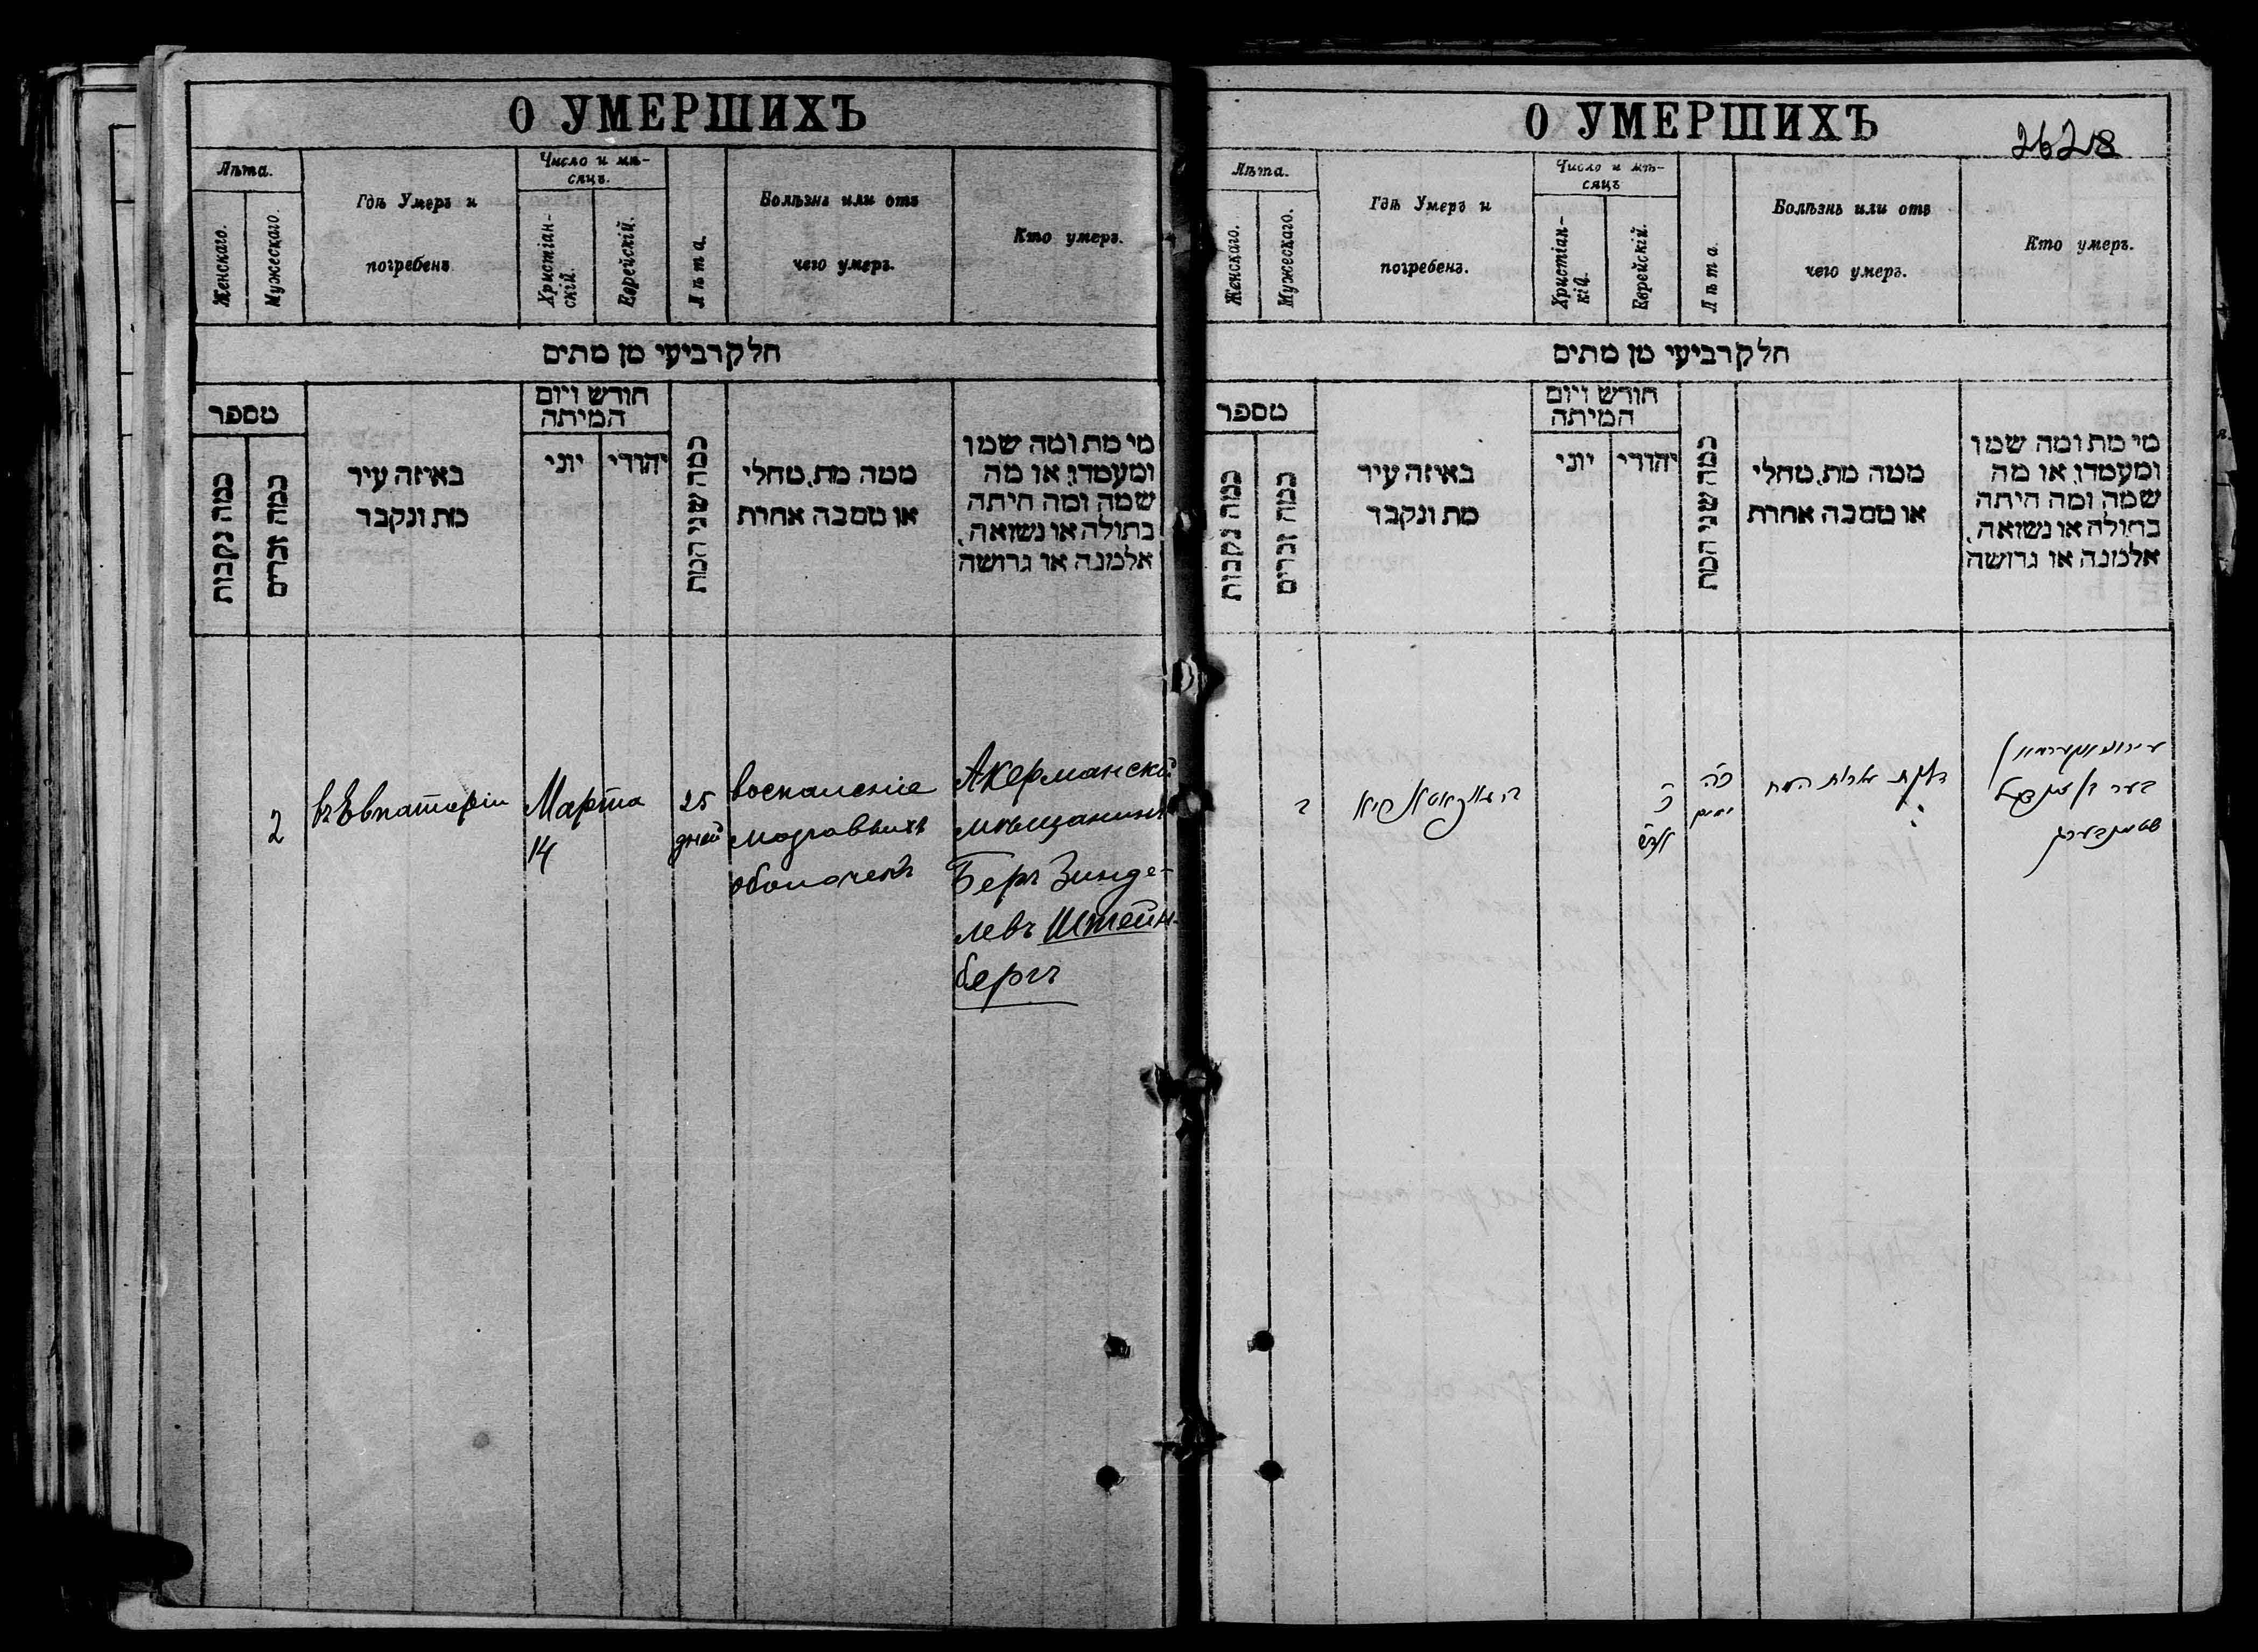 О УМЕРШИХЪ
Лѣта.
Женскаго.
Мужескаго.
Гдѣ Умеръ и
погребенъ
Число и мѣ-
сяцъ.
Христіан-
скій.
Еврейскій.
Лѣта.
Болѣзнь или отъ
чего умеръ.
Кто умеръ.
חלק רביעי מן מתים
מספר
כמה נקבות
כמה זכרים
באיזה עיר
מת ונקבר
חורש ויום
המיתה
יוני
יהודי
כמה שני המת
ממה מת, מחלי
או מסבה אחרת
מי מת ומה שמו
ומעמדו, או מה
שמה ומה היתה
בתולה או נשואה,
אלמנה או גרושה
2
въ Евпаторіи
Марта
14
25
дней
воспаленіе
мозговыхъ
оболочекъ
Акерманскій
мѣщанинъ
Беръ Зинде-
левъ Штейн-
бергъ
О УМЕРШИХЪ
2628
Лѣта.
Женскаго.
Мужескаго.
Гдѣ Умеръ и
погребенъ.
Число и мѣ-
сяцъ
Христіан-
кій.
Еврейскій.
Лѣта.
Болѣзнь или отъ
чего умеръ.
Кто умеръ.
חלק רביעי מן מתים
מספר
כמה נקבות
כמה זכרים
באיזה עיר
מת ונקבר
חורש ויום
המיתה
יוני
יהודי
כמה שני המת
ממה מת, מחלי
או מסבה אחרת
מי מת ומה שמו
ומעמדו, או מה
שמה ומה היתה
בתולה או נשואה,
אלמנה או גרושה
ב
כה
ימים
דלקת המח
בער בן
שטיינבערג